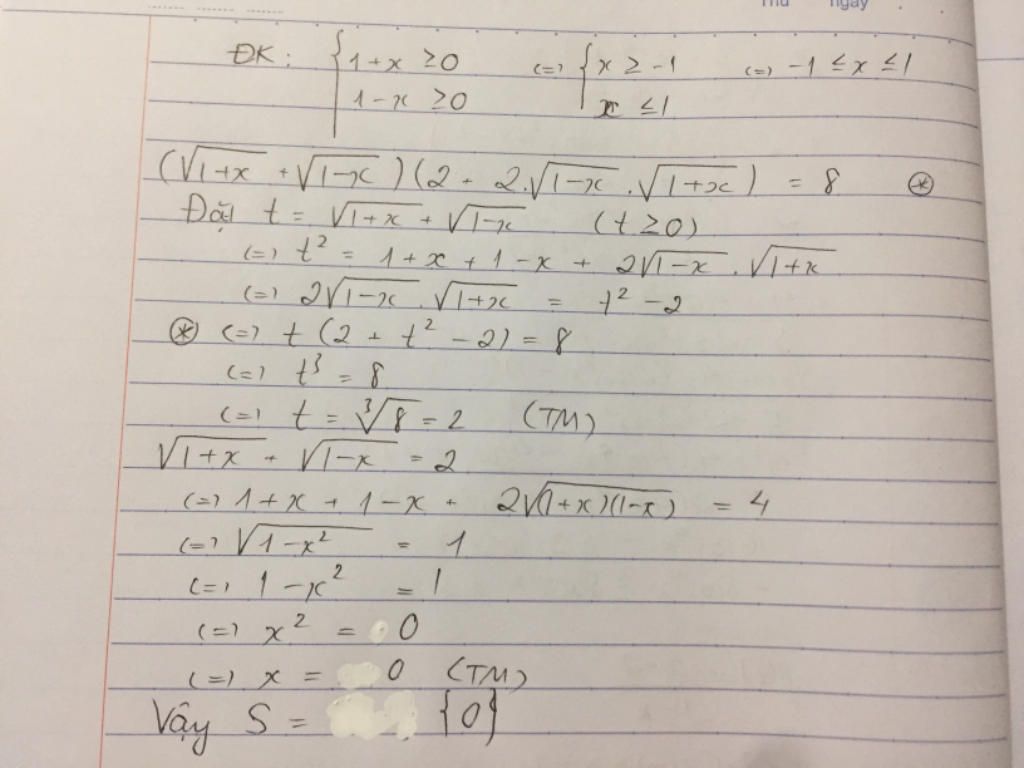 Thứ ngày
ĐK: { 1+x ≥ 0 (=) { x ≥ -1 (=) -1 ≤ x ≤ 1
1-x ≥ 0 x ≤ 1
(√(1+x) + √(1-x))(2 + 2.√(1-x).√(1+x)) = 8 ⊛
Đặt t = √(1+x) + √(1-x) (t ≥ 0)
(=) t² = 1+x+1-x + 2√(1-x).√(1+x)
(=) 2√(1-x).√(1+x) = t² - 2
⊛ (=) t(2 + t² - 2) = 8
(=) t³ = 8
(=) t = ∛8 = 2 (TM)
√(1+x) + √(1-x) = 2
(=) 1+x + 1-x + 2√((1+x)(1-x)) = 4
(=) √(1-x²) = 1
(=) 1-x² = 1
(=) x² = 0
(=) x = 0 (TM)
Vậy S = {0}